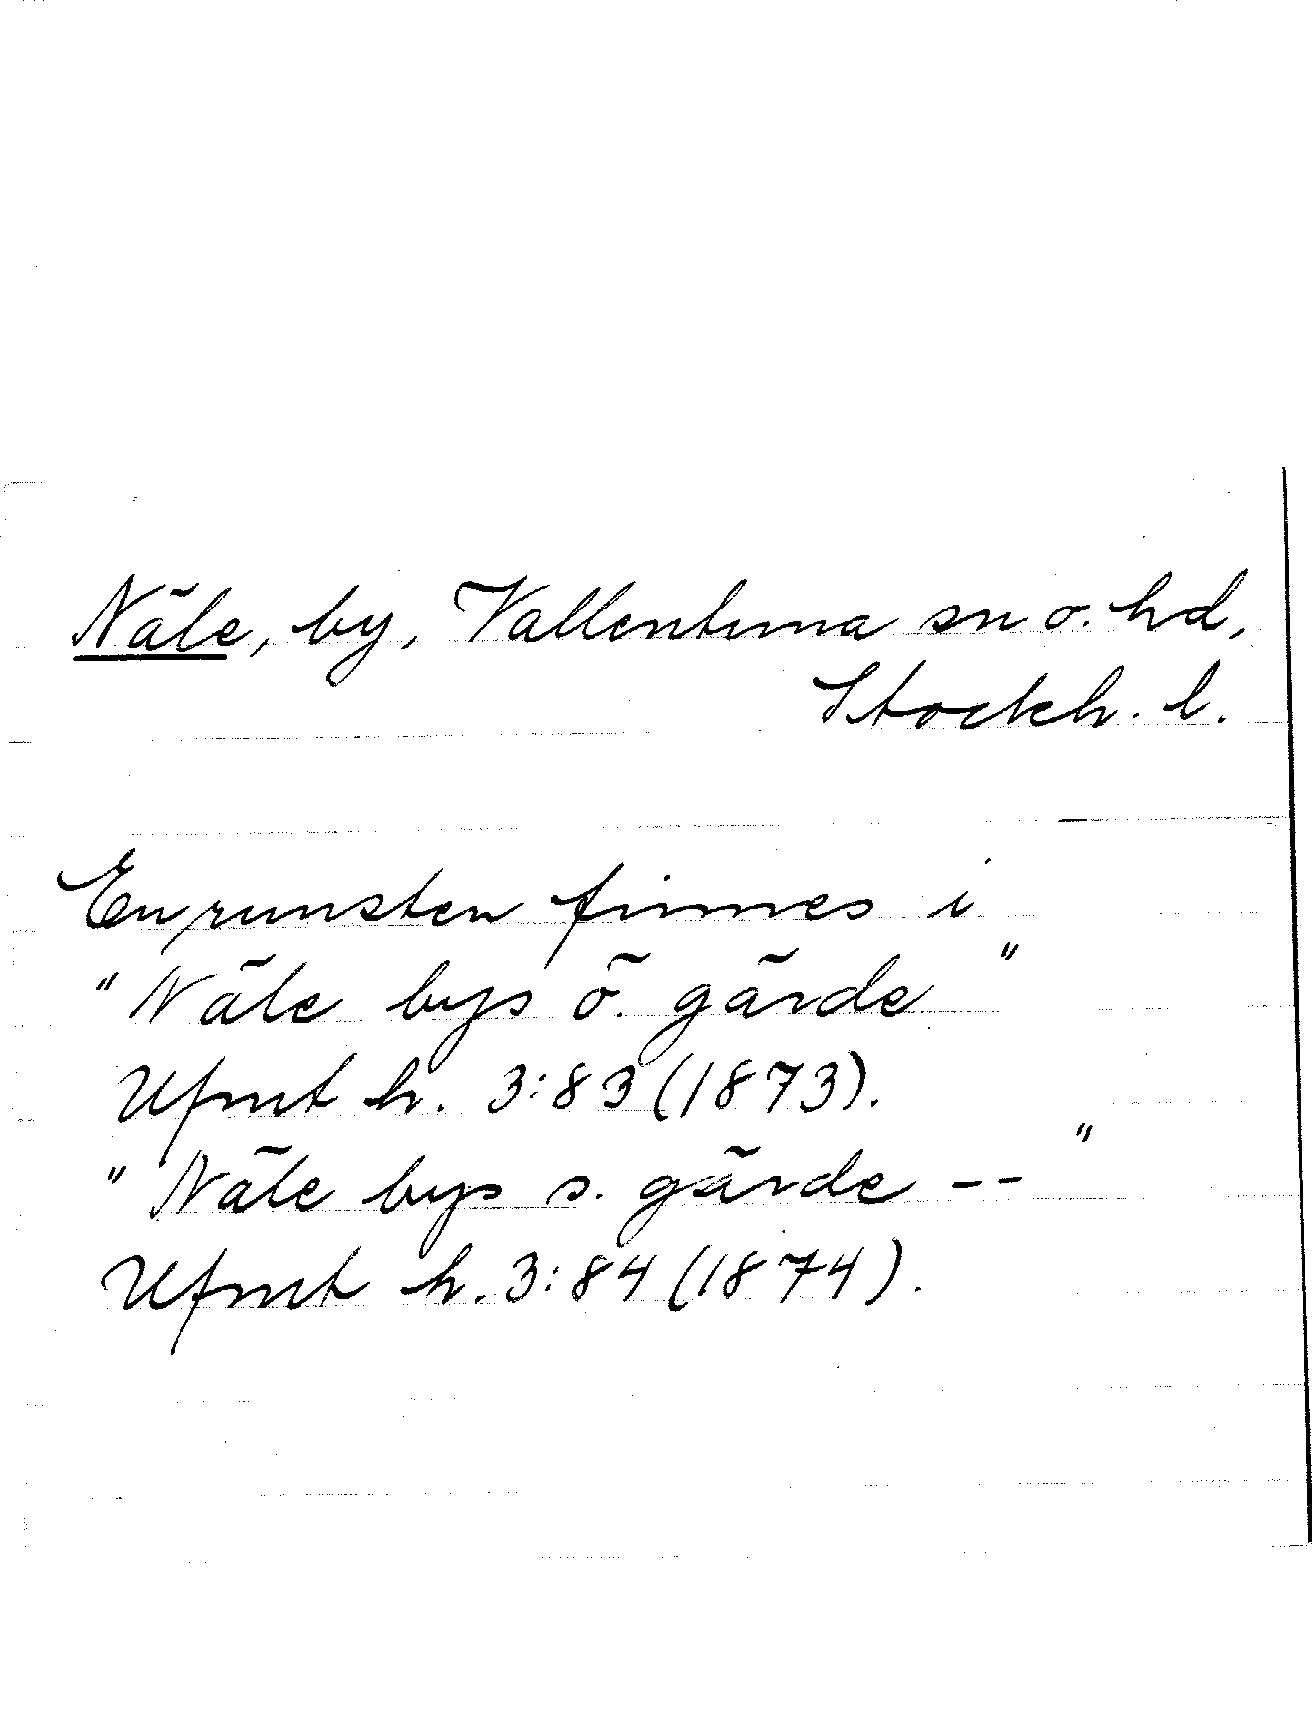 Näle, by, Vallentuna sn o. hd,
Stockh. l.
En runsten finnes i
"Näle bys ö. gärde"
Ufmt h. 3:83 (1873).
"Näle bys s. gärde --"
Ufmt h. 3:84 (1874).